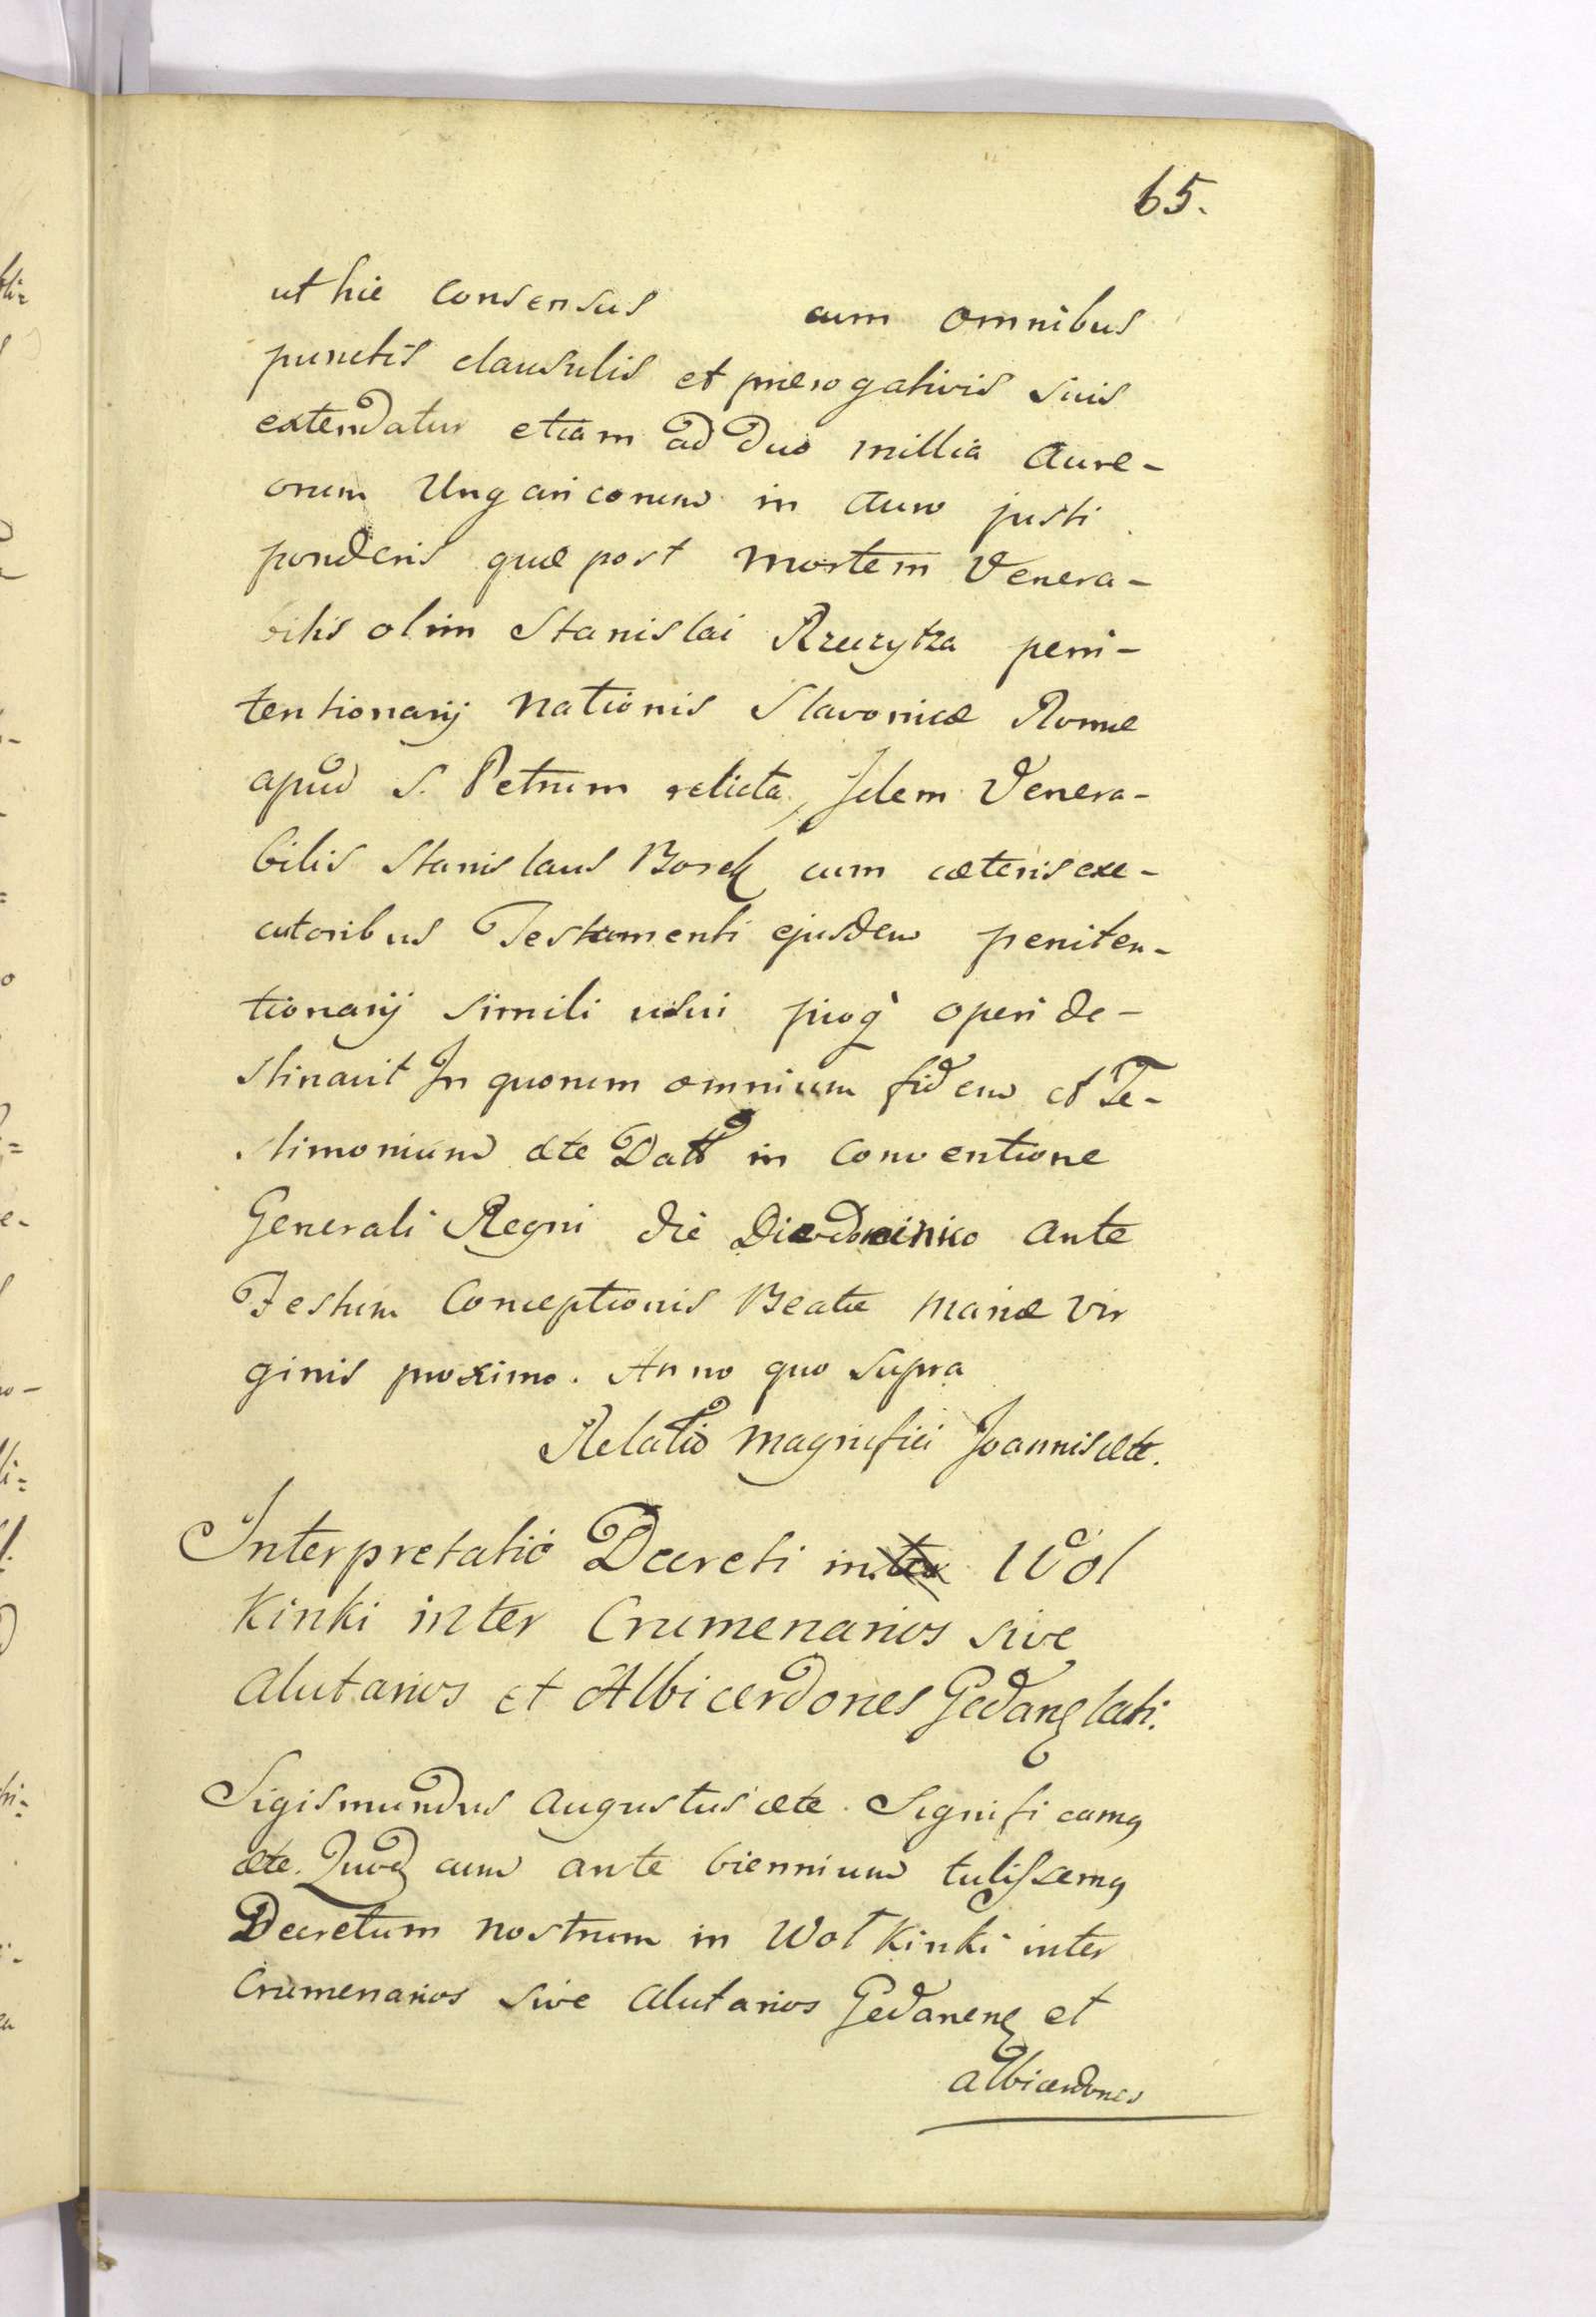 65.
ut hic consensus cum omnibus
punctis clausulis et prærogativis suis
extendatur etiam ad duo millia aure-
orum Ungaricorum in auro justi
ponderis quæ post mortem Venera-
bilis olim Stanislai Rzeczytza peni-
tentionarij nationis Slavonicæ Romæ
apud S. Petrum relicta, Idem Venera-
bilis Stanislaus Borek cum cæteris exe-
cutoribus Testamenti ejusdem peniten-
tionarij simili usui pioq operi de-
stinavit In quorum omnium fidem et Te-
stimonium ete Datt in conventione
Generali Regni die Dominico ante
Festum Conceptionis Beatæ Mariæ Vir
ginis proximo. Anno quo supra
Relatio magnifici Joannis ete.
Interpretatio Decreti inter Wol
kinki inter Crumenarios sive
Alutarios et Albicerdones Gedanen lati.
Sigismundus Augustus ete. Significamq
ete. Quod cum ante biennium tulissemq
Decretum nostrum in Wolkinki inter
Crumenarios sive Alutarios Gedanen et
albicerdones